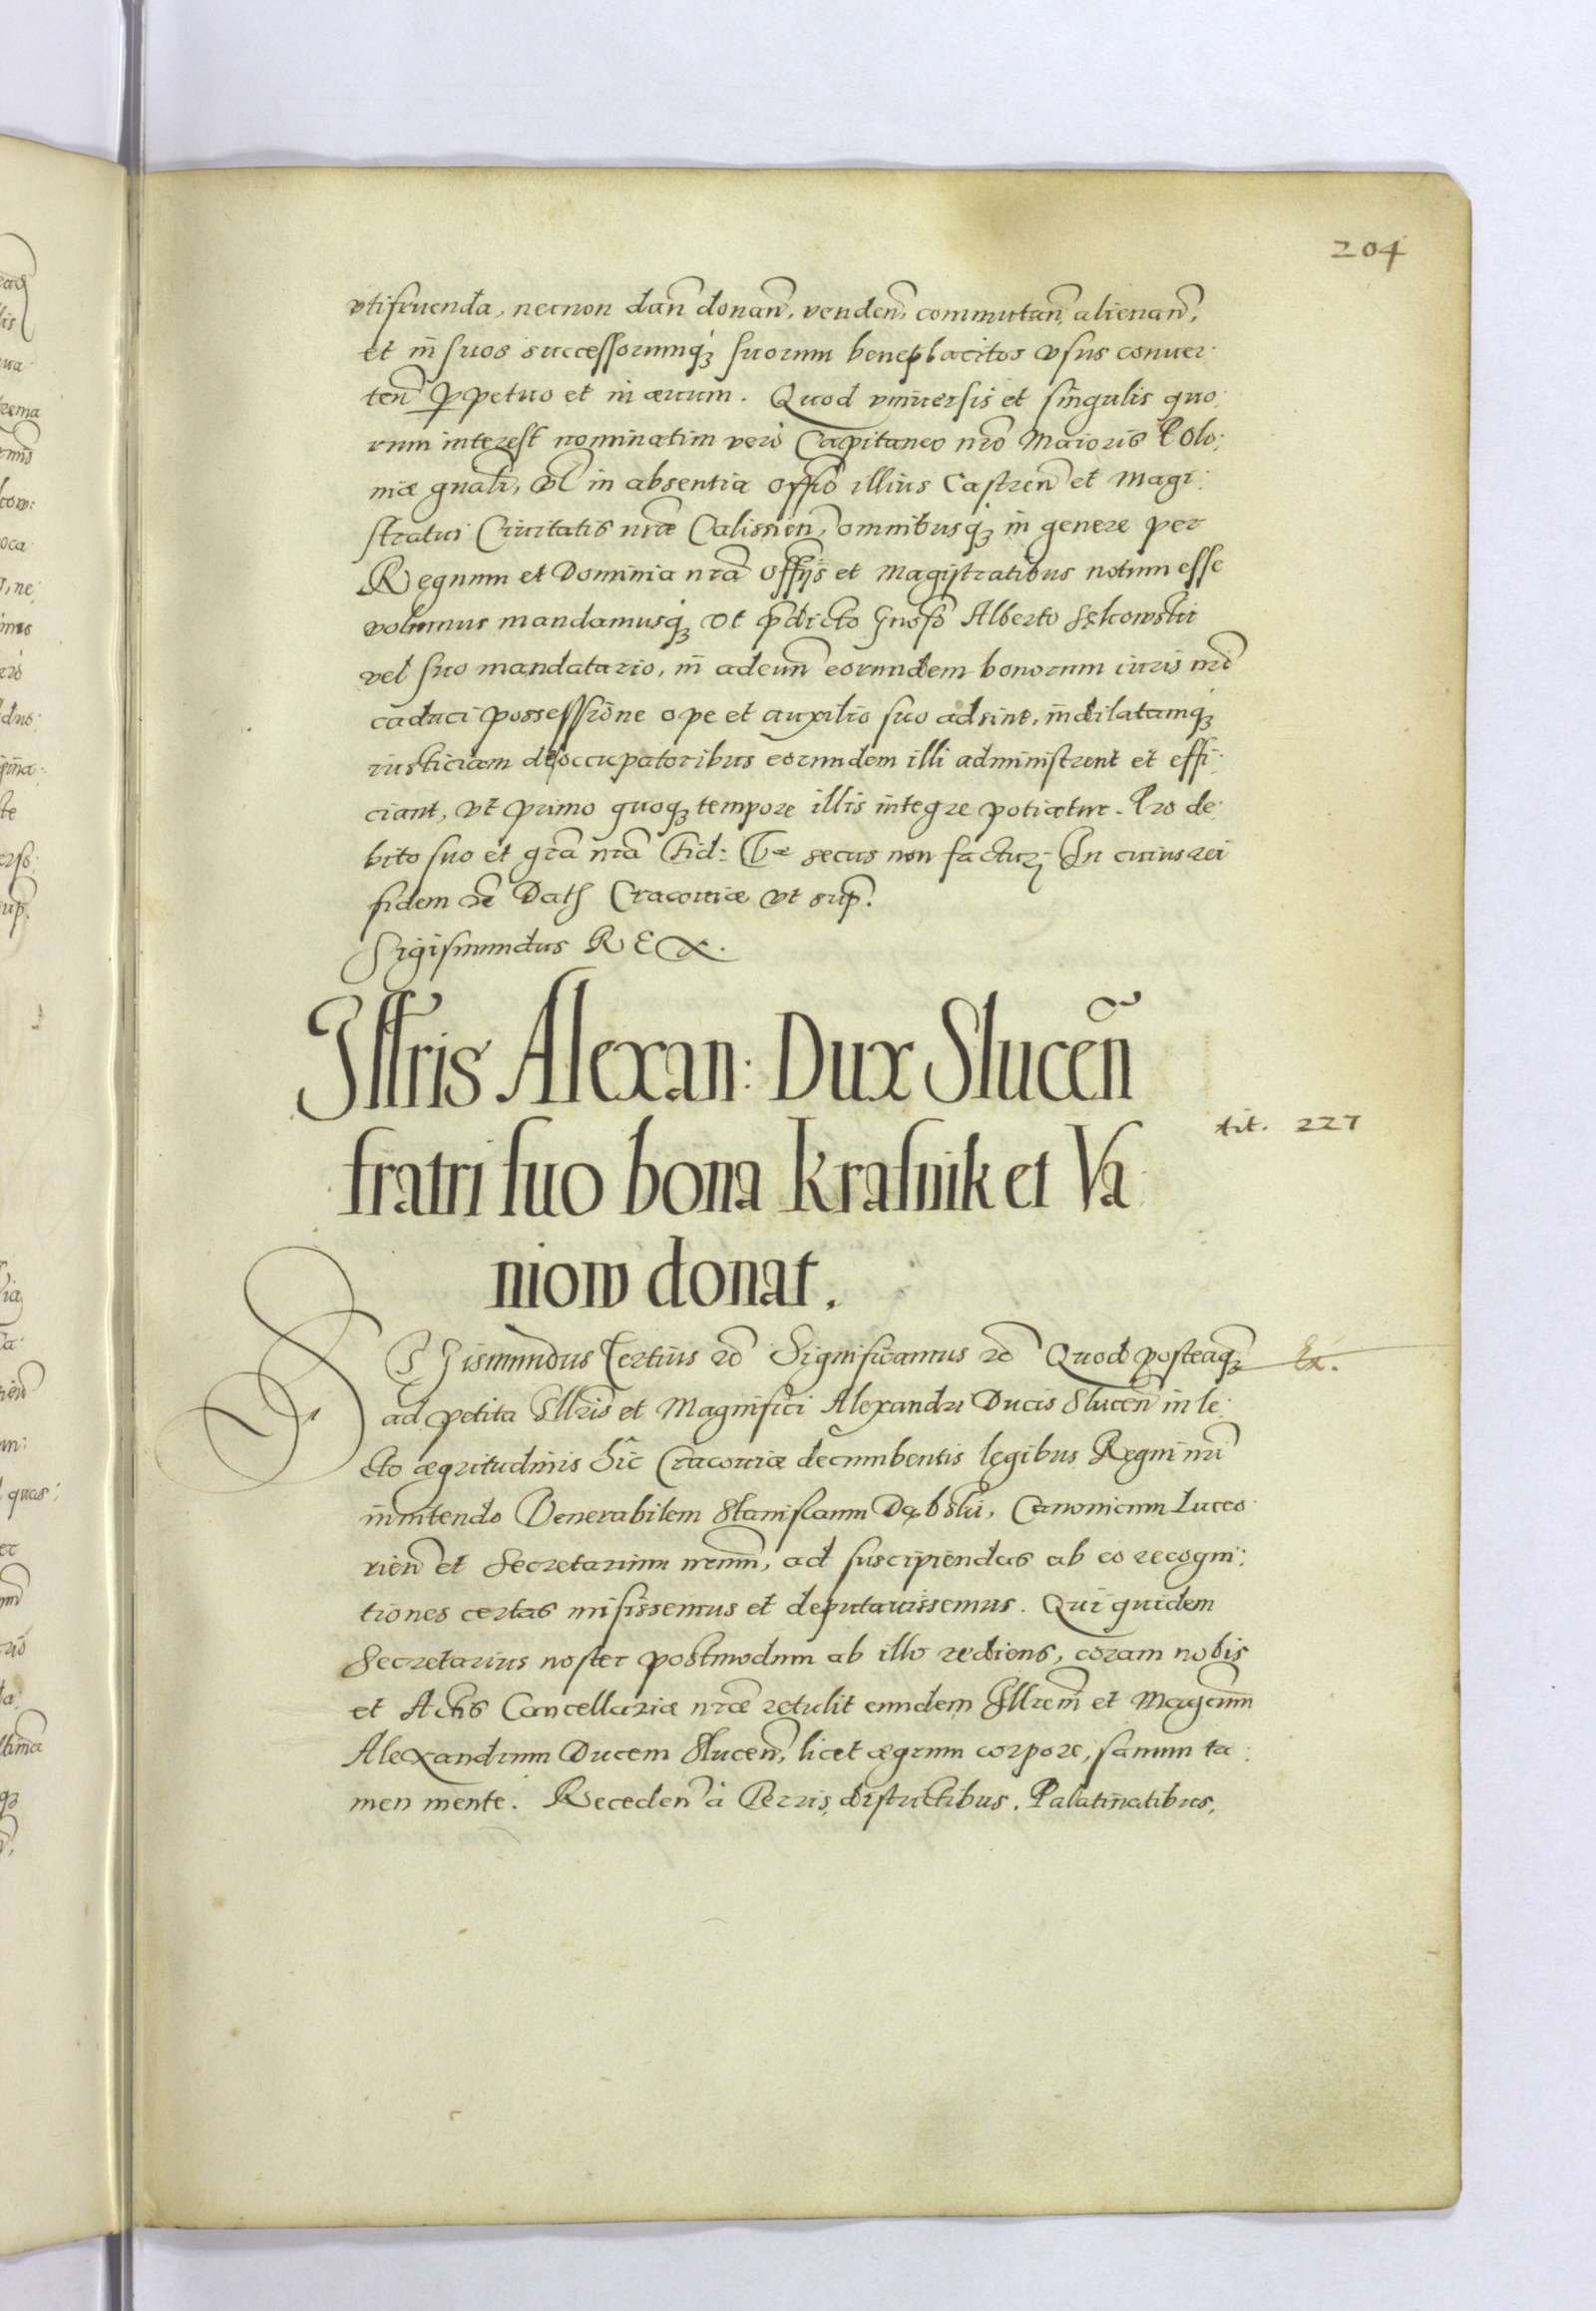 204
vtifruenda, necnon dan̄ donan̄, venden̄, commutan̄, alienan̄,
et in suos successorumq́ꝫ suorum beneplacitos vsus conuer:
ten̄ ꝑpetuo et in æuum. Quod vniuersis et singulis quo:
rum interest nominatim verò Capitaneo nr̄o Maioris Polo:
niæ gn̄ali, vl̄ in absentia offīo illius Castren̄ et Magi:
stratui Ciuitatis nr̄æ Calissien̄, omnibusq́ꝫ in genere per
Regnum et Dominia nr̄a offīijs et Magistratibus notum esse
volumus mandamusq́ꝫ vt p̄dicto Gnoso Alberto Sękowski
vel suo mandatario, in adeun̄ eorundem bonorum iuris nr̄i
caduci possessione ope et auxilio suo adsint, indilatamq́ꝫ
iusticiam de occupatoribus eorundem illi administrent et effi:
ciant, vt primo quoqꝫ tempore illis integre potiatur. Pro de:
bito suo et gr̄a nr̄a secus non factur. In cuius rei
fidem Cracouiæ vt sup̄.
Sigismundus REX.
Illris Alexan: Dux Slucen̄
fratri suo bona Krasnik et Va
niow donat.
tit. 227
SIGismundus Tertius Significamus Quod posteaqꝫ
Ex.
ad petita Illris et Magnifici Alexandri Ducis Slucen̄ in le:
cto ægritudinis hîc Cracouiæ decumbentis legibus Regni nr̄i
innitendo Venerabilem Stanislaum Dąbski, Canonicum Luceo:
rien̄ et Secretarium nr̄um, ad suscipiendas ab eo recogni:
tiones certas misissemus et deputauissemus. Qui quidem
Secretarius noster postmodum ab illo rediens, coram nobis
et Actis Cancellariæ nr̄æ retulit eundem Illrem et Magcum
Alexandrum Ducem Slucen̄, licet ægrum corpore, sanum ta:
men mente. Receden̄ à Terris, districtibus, Palatinatibus,